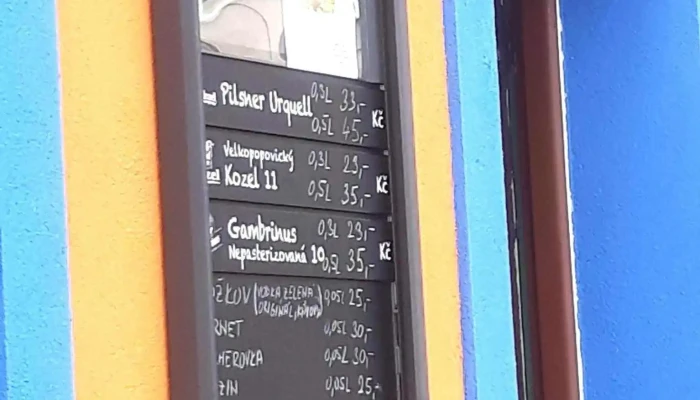 Pilsner Urquell 0,3L 33,-
0,5L 45,- Kč
Velkopopovický 0,3L 23,-
Kozel 11 0,5L 35,- Kč
Gambrinus 0,3L 23,-
Nepasterizovaná 10 0,5L 35,- Kč
ŽKOV (VODKA, ZELENÁ, 0,05L 25,-
ORIGINÁL,
RNET 0,05L 30,-
HEROVKA 0,05L 30,-
ZIN 0,05L 25,-